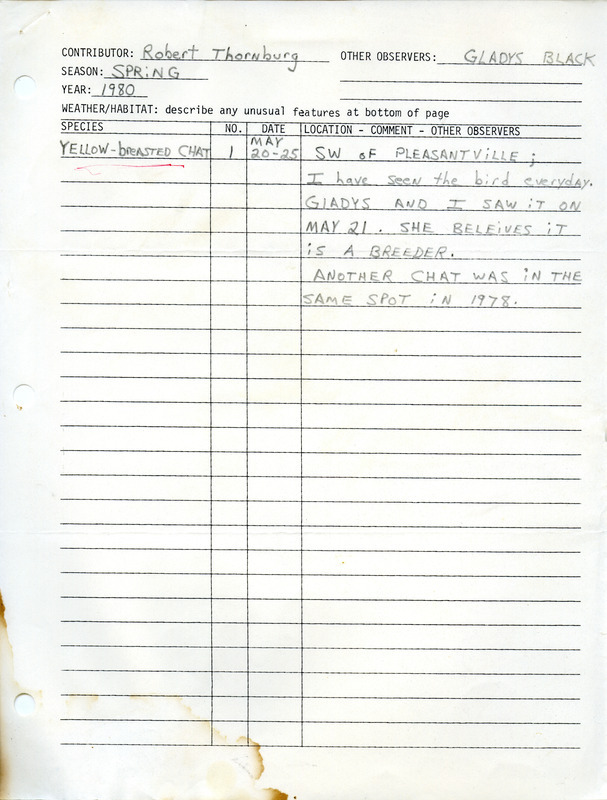 CONTRIBUTOR: Robert Thornburg OTHER OBSERVERS: GLADYS BLACK
SEASON: SPRiNG
YEAR: 1980
WEATHER/HABITAT: describe any unusual features at bottom of page
SPECIES NO. DATE LOCATION - COMMENT - OTHER OBSERVERS
YELLOW-brEASTED CHAT 1 MAY 20-25 SW oF PLEASANTViLLE;
I have seen the bird everyday.
GlADYS AND I SAW iT ON
MAY 21. SHE BELEiVES iT
iS A BREEDER.
ANOTHER CHAT WAS iN THE
SAME SPOT iN 1978.